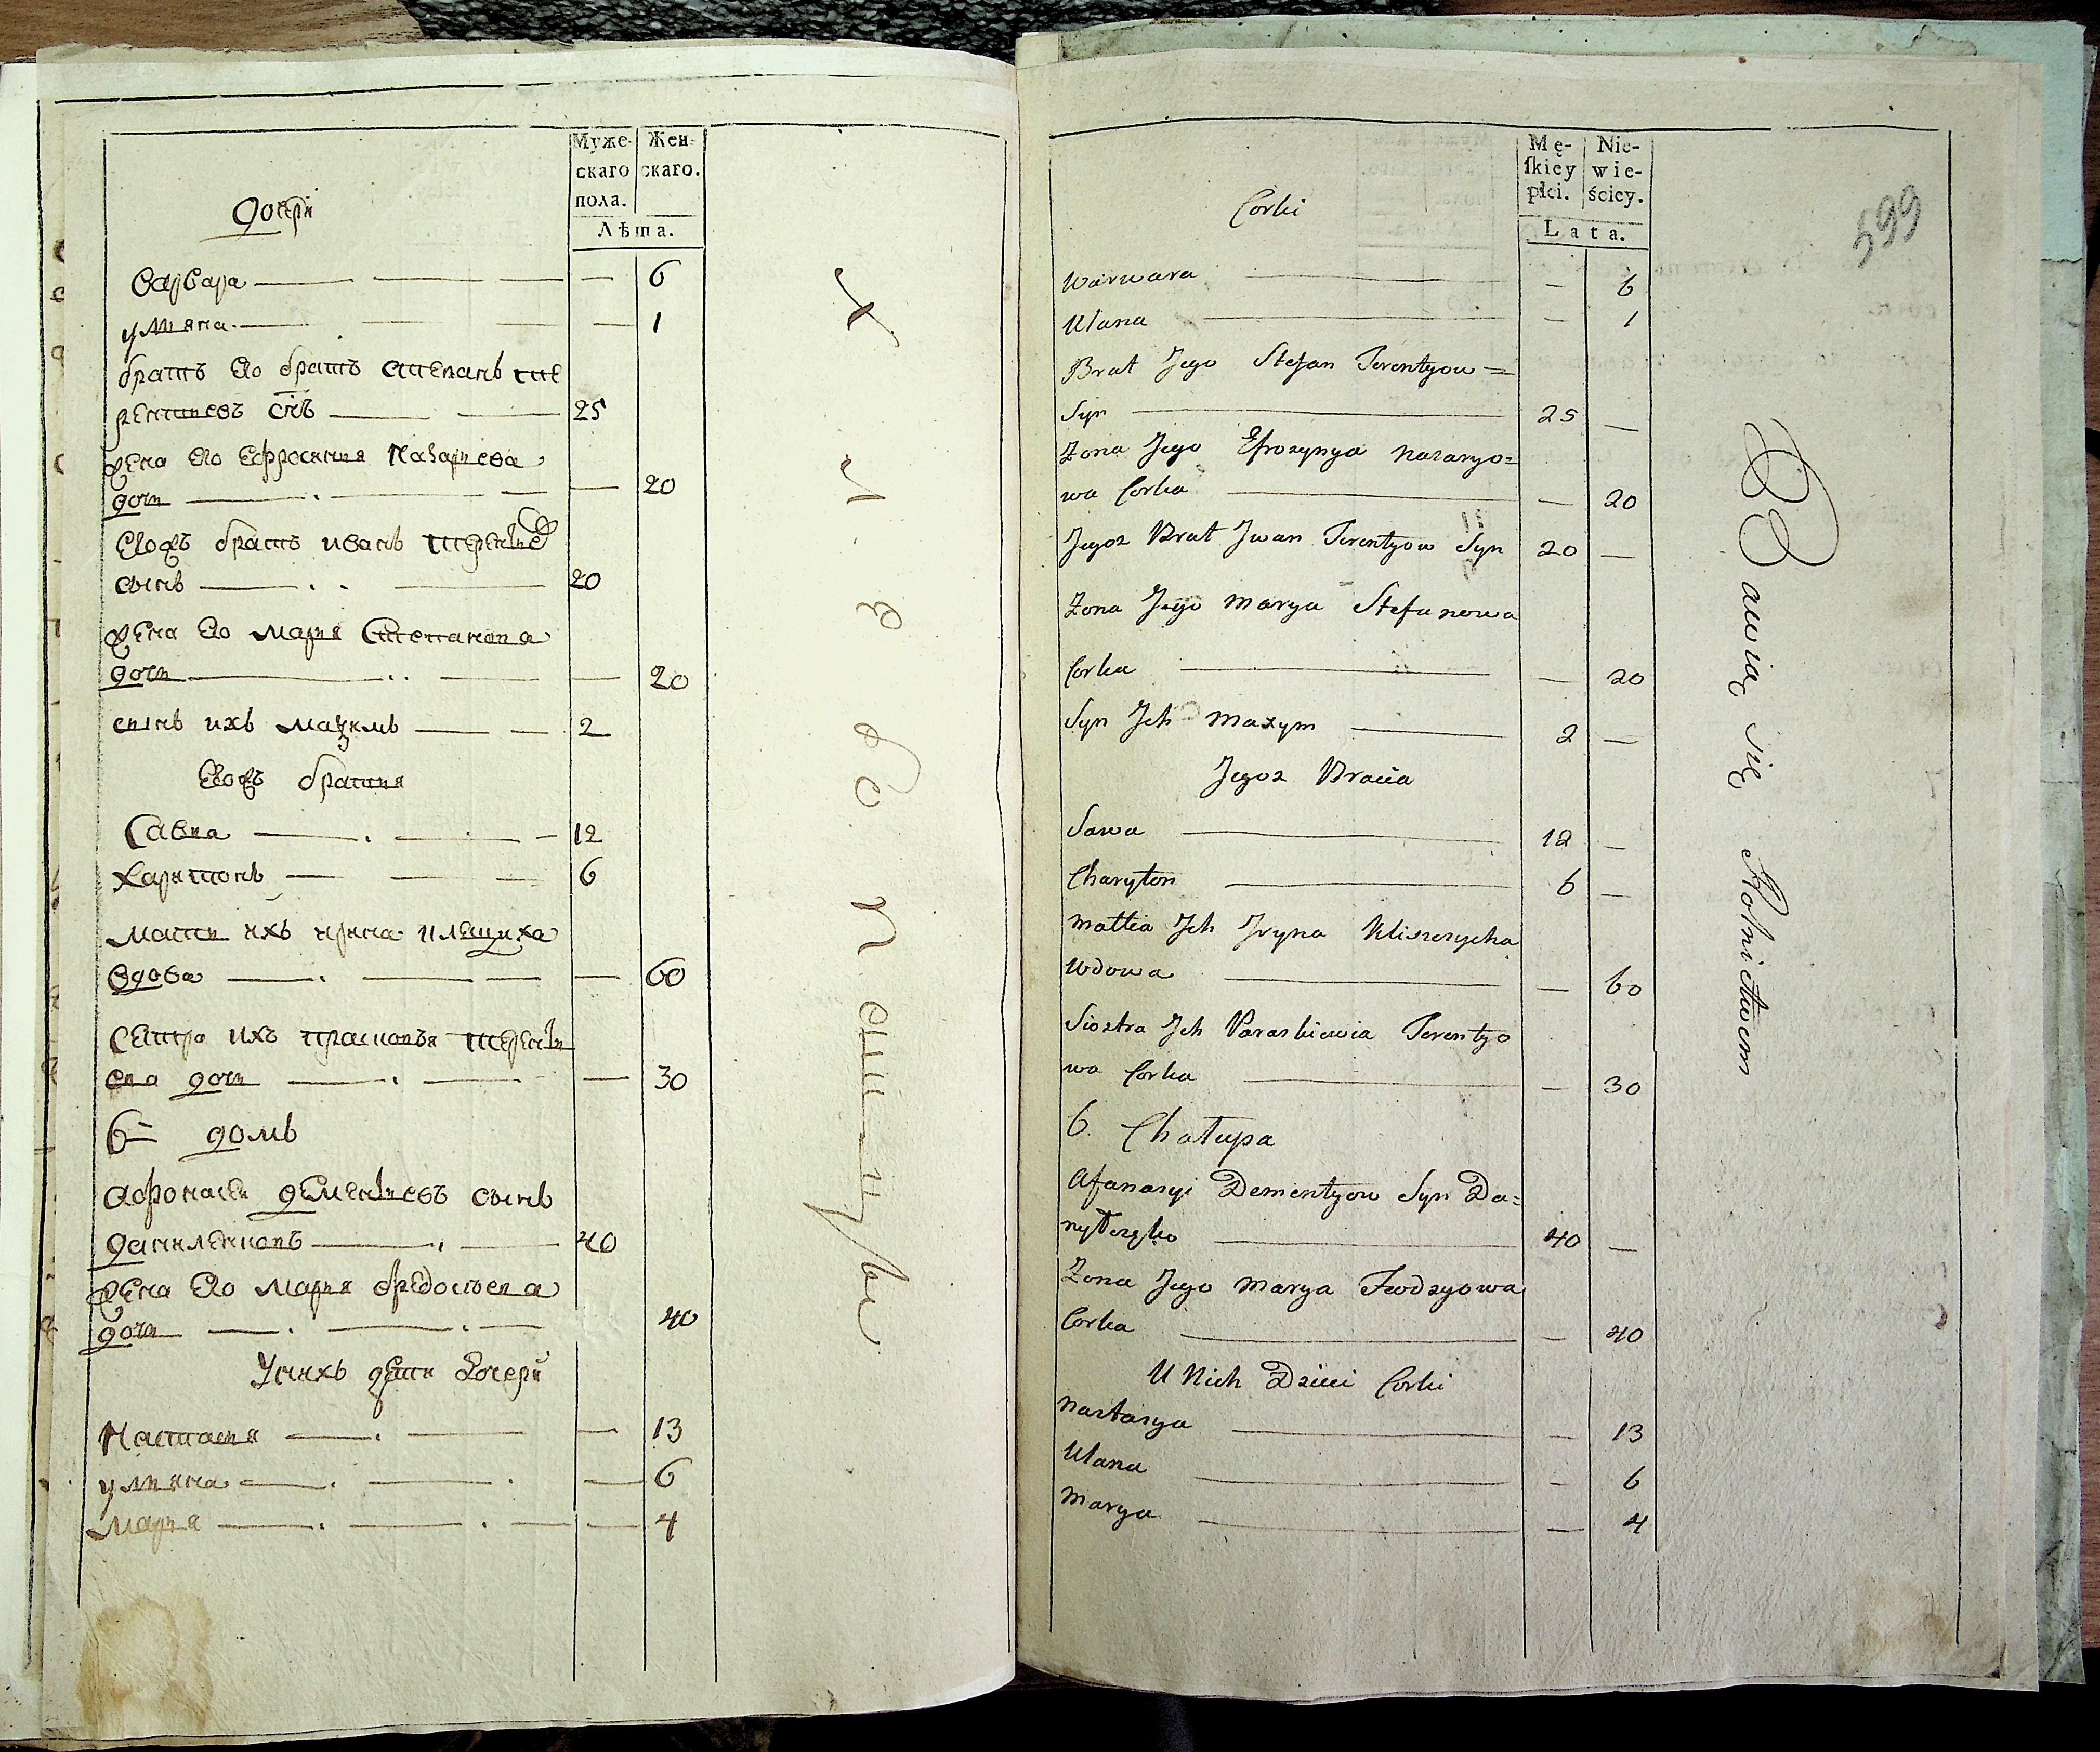 Муже-
скаго
пола.
Жен-
скаго.
Лѣта.
дочери
Варвара — 6
улияна — 1
братъ его братъ степанъ те
рентиевъ снъ — 25
жена его Ефросиния Назариева
дочь — 20
Егожъ братъ иванъ терентиев
сынъ — 20
жена его мария Степанова
дочь — 20
сынъ ихъ мазимъ — 2
Егожъ братия
Савка — 12
Харитонъ — 6
мати ихъ ирина
вдова — 60
Сестра ихъ терентие
ва дочь — 30
6й домъ
афонасеи дементиевъ сынъ
даниленковъ — 40
жена его мария федосеева
дочь — 40
У нихъ дети дочери
Настасия — 13
улияна — 6
мария — 4
хлебопашцы
Mę-
skiey
płci.
Nie-
wie-
ściey.
Lata.
599
Corki
Warwara — 6
Ulana — 1
Brat Jego Stefan Terentyow=
Syn — 25 —
Zona Jego Efrozynya Nazaryo=
wa Corka — 20
Jegoz Brat Jwan Terentyow Syn 20 —
Zona Jego Marya Stefanowa
Corka — 20
Syn Jch Maxym — 2 —
Jegoz Bracia
Sawa — 12 —
Charyton — 6 —
Matka Jch Jryna Kliszczycha
Wdowa — 60
Siostra Jch Paraskiewia Terentyo
wa Corka — 30
6. Chałupa
Afanasyi Dementyow Syn Da=
nyłczyko — 40 —
Zona Jego Marya Fedosyowa
Corka — 40
U Nich Dzieci Corki
Nastasya — 13
Ulana — 6
Marya — 4
Bawią się Rolnictwem